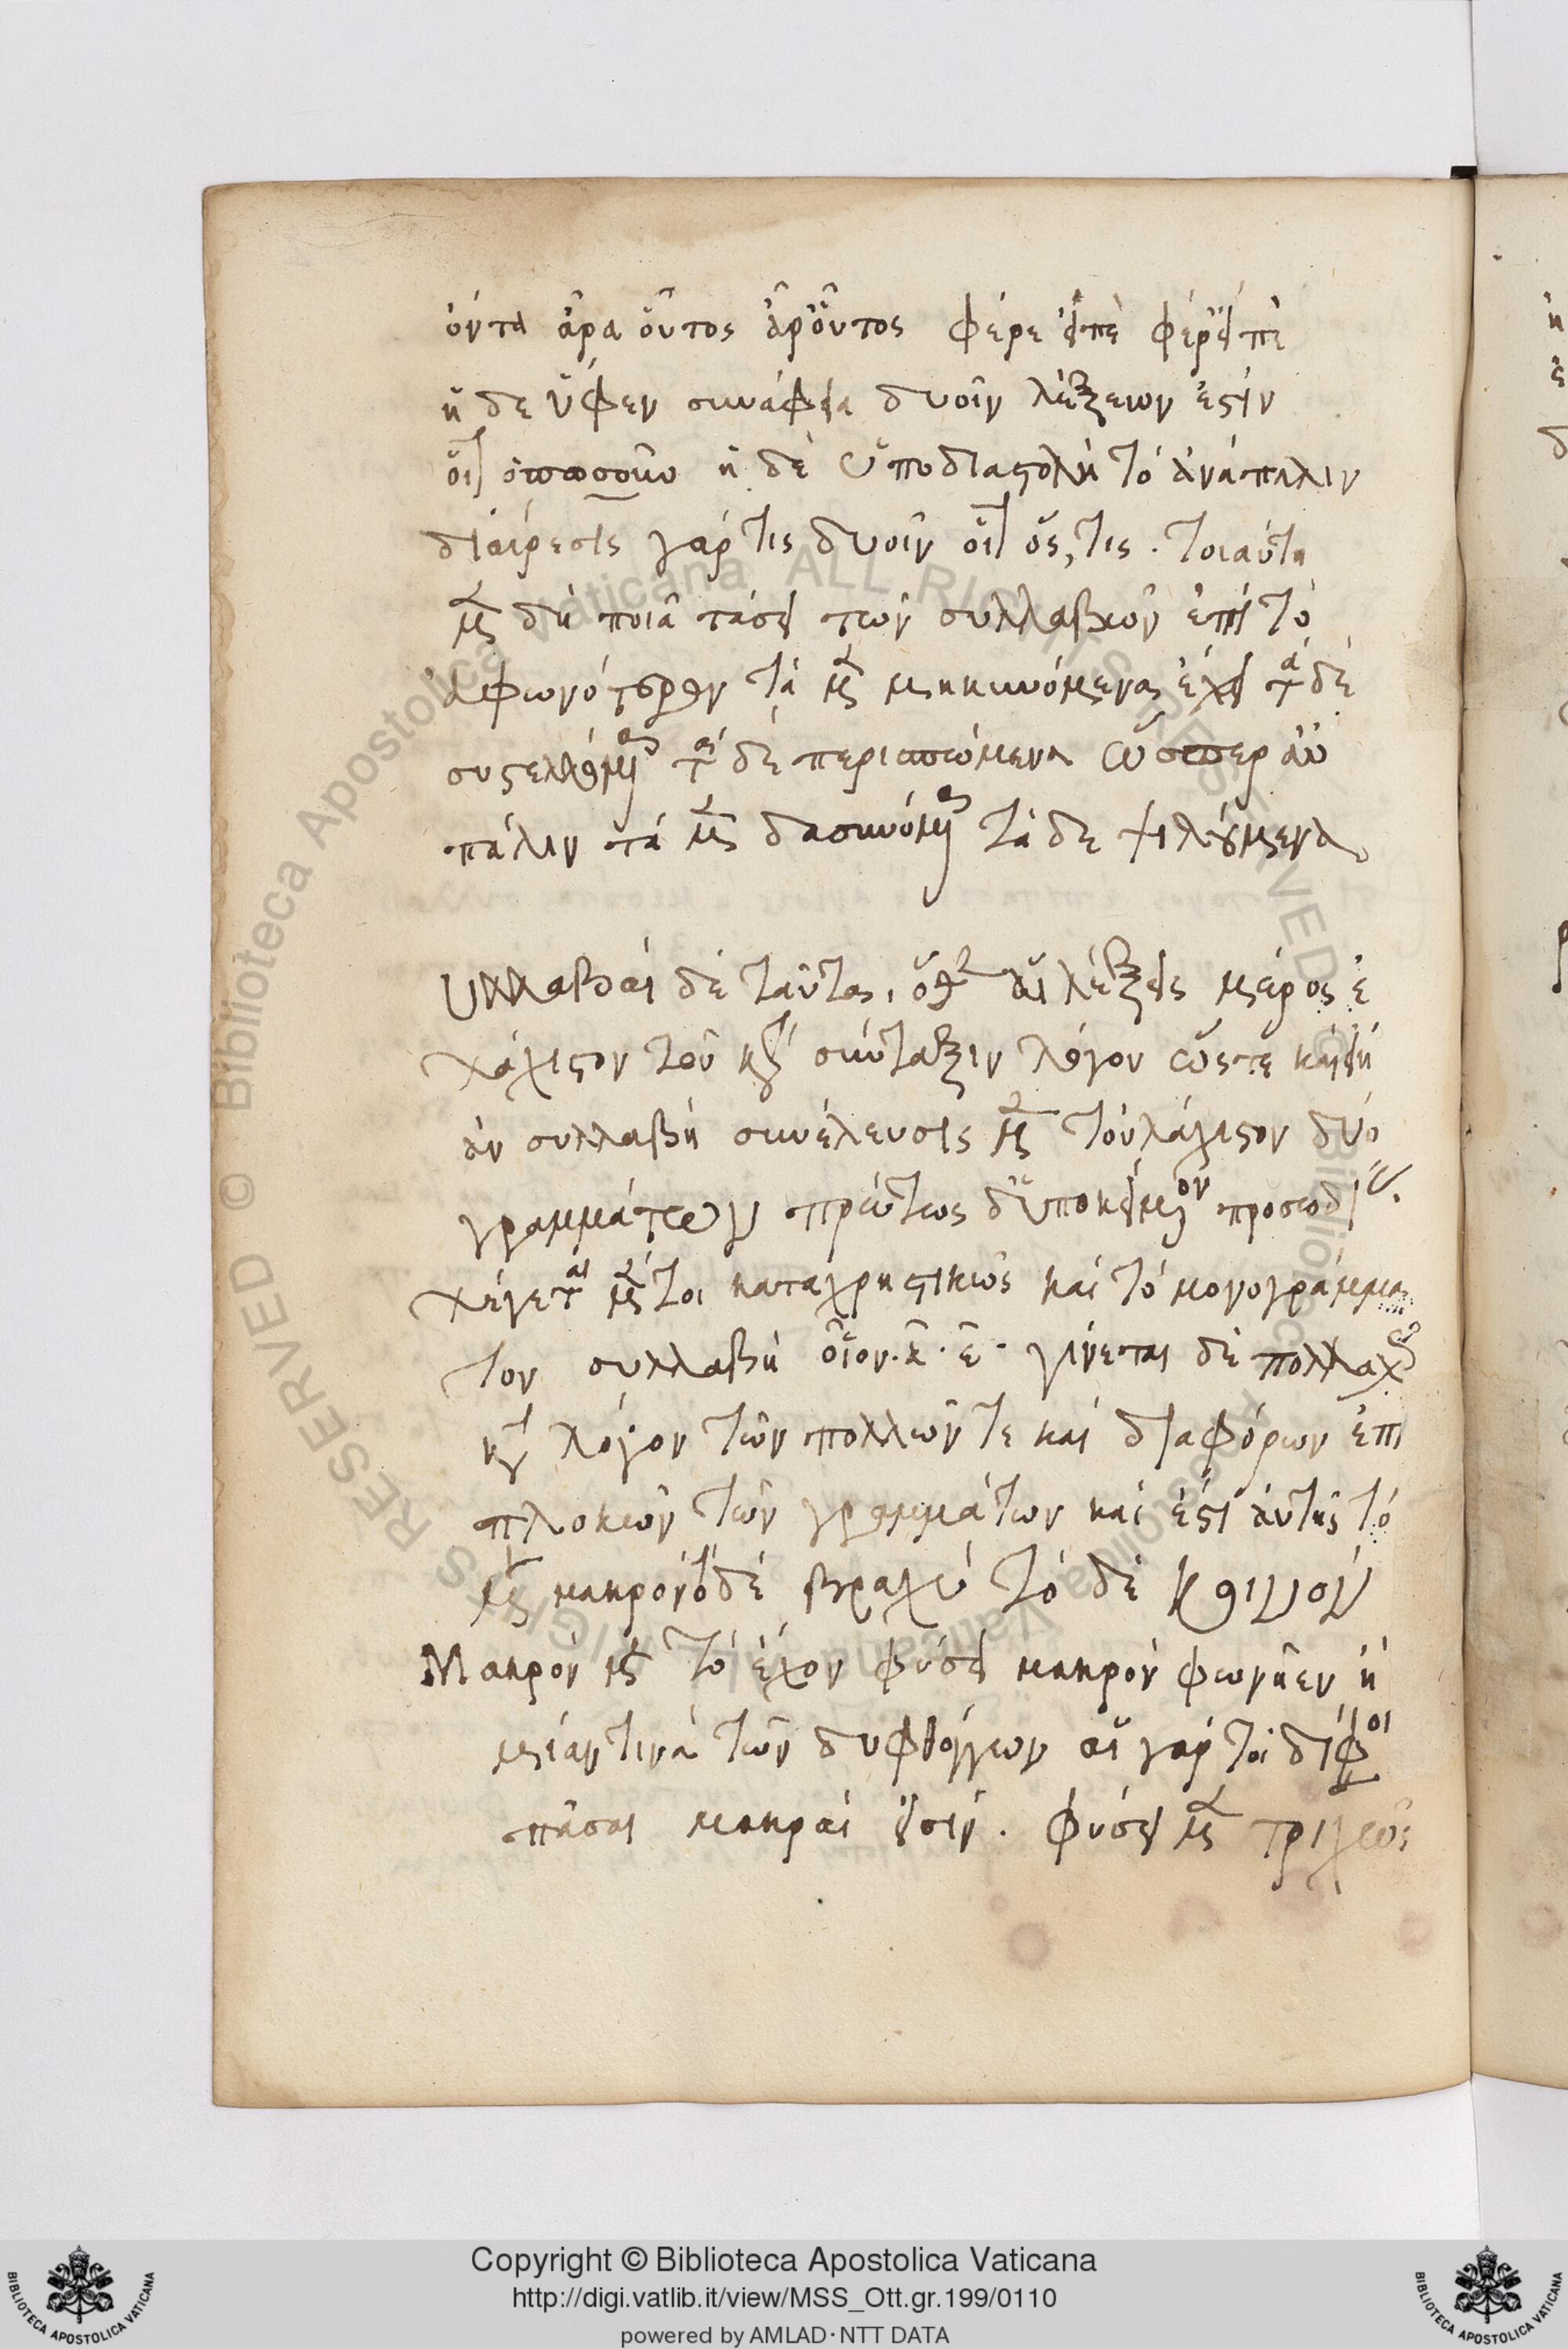 όντα ἆρα οὗτος ἀρ' οὗτος φέρε εἰπὲ φέρ' εἰπὲ
ἡ δε ὕφεν συνάφεια δυοῖν λέξεων ἐστὶν
οἷ ἡ δὲ ὑποδιαστολὴ τὸ ἀνάπαλιν
διαίρεσις γάρ τις δυοῖν οἷ ὅς, τις. τοιαύτη
μὲν δὴ ποιὰ τάσει τῶν συλλαβῶν ἐπὶ τὸ
τὰ μὲν μηκυνόμενα ἔχει τὰ δὲ
συστελλόμενα τὰ δὲ περισπώμενα ὥσπερ αὖ
πάλιν τὰ μὲν δασυνόμενα τὰ δε ψιλούμενα
υλλαβαὶ δὲ ταῦτα, ὅθεν αἱ λέξεις μέρος ἐ
λάχιστον τοῦ κατὰ σύνταξιν λόγον ὥστε καὶ εἴη
ἀν συλλαβὴ συνέλευσις μὲν τοὐλάχιστον δύο
γραμμάτων πρώτως δ' ὑποκείμενον προσωδίας.
λέγεται μέντοι καταχρηστικῶς καὶ τὸ μονογράμμα
τον συλλαβὴ οἷον. α. ε. γίνεται δὲ πολλαχῶς
κατὰ λόγον τῶν πολλῶν τε καὶ διαφόρων ἐπι
πλοκῶν τῶν γραμμάτων καὶ ἐστὶ αὐτῆς τὸ
μὲν μακρὸν τὸ δὲ βραχὺ τὸ δὲ κοινον
Μακρὸν μὲν τὸ ἔχον φύσει μακρὸν φωνῆεν ἢ
μίαν τινὰ τῶν διφθόγγων αἱ γάρ τοι δίφθογγοι
πᾶσαι μακραὶ εἰσίν. φύσει μὲν τριχῶς
Copyright © Biblioteca Apostolica Vaticana
http://digi.vatlib.it/view/MSS_Ott.gr.199/0110
powered by AMLAD·NTT DATA
BIBLIOTECA APOSTOLICA VATICANA
BIBLIOTECA APOSTOLICA VATICANA